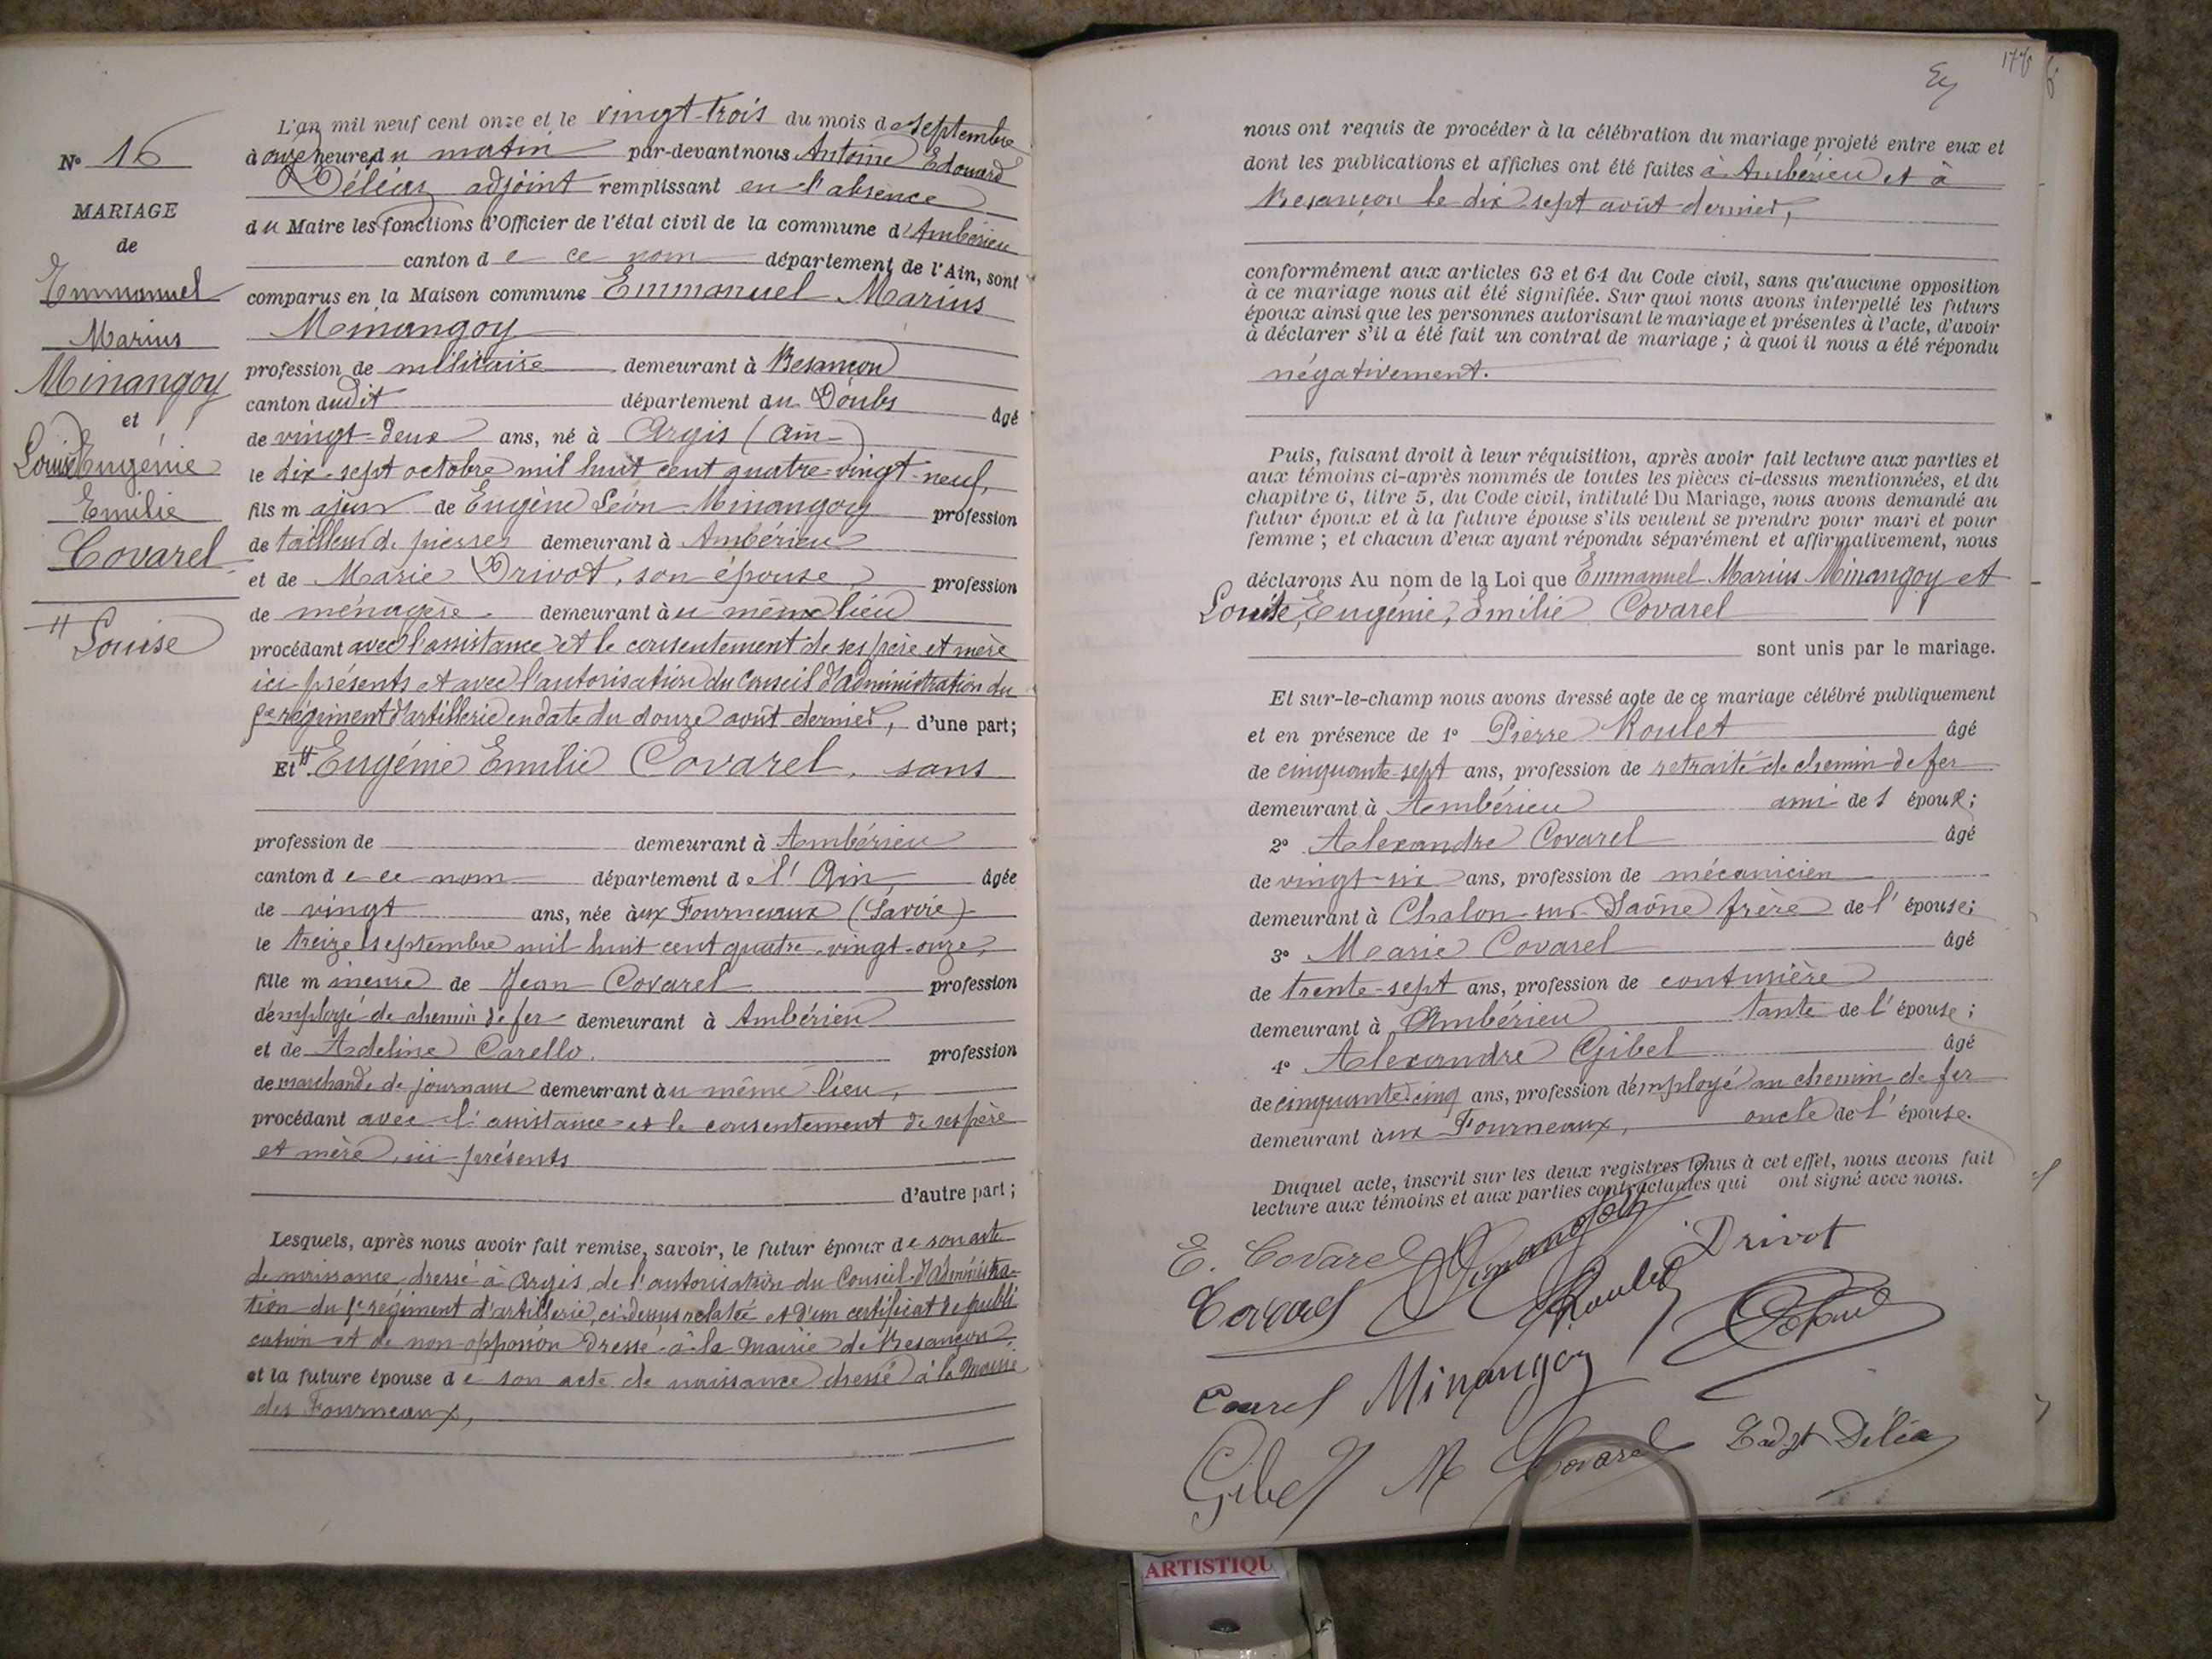 N° 16
MARIAGE
de
Emmanuel
Marius
Minangoy
et
Louise Eugénie
Emilie
Covarel
# Louise
L'an mil neuf cent onze et le vingt-trois du mois de septembre
à onze heures du matin par-devant nous Antoine Edouard
Déléaz adjoint remplissant en l'absence
du Maire les fonctions d'Officier de l'état civil de la commune d'Ambérieu
canton de ce nom département de l'Ain, sont
comparus en la Maison commune Emmanuel Marius
Minangoy
profession de militaire demeurant à Besançon
canton dudit département du Doubs âgé
de vingt-deux ans, né à Argis (Ain)
le dix-sept octobre mil huit cent quatre-vingt-neuf,
fils majeur de Eugène Léon Minangoy profession
de tailleur de pierres demeurant à Ambérieu
et de Marie Drivot, son épouse profession
de ménagère demeurant au même lieu
procédant avec l'assistance et le consentement de ses père et mère
ici présents et avec l'autorisation du Conseil d'Administration du
régiment d'artillerie en date du douze août dernier, d'une part;
Et # Eugénie Emilie Covarel, sans
profession de demeurant à Ambérieu
canton de ce nom département de l'Ain, âgée
de vingt ans, née aux Fourneaux (Savoie)
le treize septembre mil huit cent quatre-vingt-onze,
fille mineure de Jean Covarel profession
d'employé de chemin de fer demeurant à Ambérieu
et de Adeline Carello profession
de marchande de journaux demeurant au même lieu,
procédant avec l'assistance et le consentement de ses père
et mère, ici présents
d'autre part;
Lesquels, après nous avoir fait remise, savoir, le futur époux de son acte
de naissance dressé à Argis, de l'autorisation du Conseil d'Administra-
tion du régiment d'artillerie, ci-dessus relatée et d'un certificat de publi
cation et de non-opposion dressé à la Mairie de Besançon
et la future épouse de son acte de naissance dressé à la Mairie
des Fourneaux,
176
nous ont requis de procéder à la célébration du mariage projeté entre eux et
dont les publications et affiches ont été faites à Ambérieu et à
Besançon le dix sept août dernier,
conformément aux articles 63 et 64 du Code civil, sans qu'aucune opposition
à ce mariage nous ait été signifiée. Sur quoi nous avons interpellé les futurs
époux ainsi que les personnes autorisant le mariage et présentes à l'acte, d'avoir
à déclarer s'il a été fait un contrat de mariage ; à quoi il nous a été répondu
négativement.
Puis, faisant droit à leur réquisition, après avoir fait lecture aux parties et
aux témoins ci-après nommés de toutes les pièces ci-dessus mentionnées, et du
chapitre 6, titre 5, du Code civil, intitulé Du Mariage, nous avons demandé au
futur époux et à la future épouse s'ils veulent se prendre pour mari et pour
femme ; et chacun d'eux ayant répondu séparément et affirmativement, nous
déclarons Au nom de la Loi que Emmanuel Marius Minangoy et
Louise, Eugénie, Emilie Covarel
sont unis par le mariage.
Et sur-le-champ nous avons dressé acte de ce mariage célébré publiquement
et en présence de 1° Pierre Roulet âgé
de cinquante-sept ans, profession de retraité de chemin de fer
demeurant à Ambérieu ami de l époux;
2° Alexandre Covarel âgé
de vingt-six ans, profession de mécanicien
demeurant à Chalon-sur-Saône frère de l' épouse;
3° Marie Covarel âgé
de trente-sept ans, profession de couturière
demeurant à Ambérieu tante de l' épouse;
4° Alexandre Gibel âgé
de cinquante-cinq ans, profession d'employé au chemin de fer
demeurant aux Fourneaux, oncle de l' épouse.
Duquel acte, inscrit sur les deux registres tenus à cet effet, nous avons fait
lecture aux témoins et aux parties contractantes qui ont signé avec nous.
E. Covarel Drivot
Covarel Roulet
Minangoy
Gibel M Covarel
ARTISTIQU